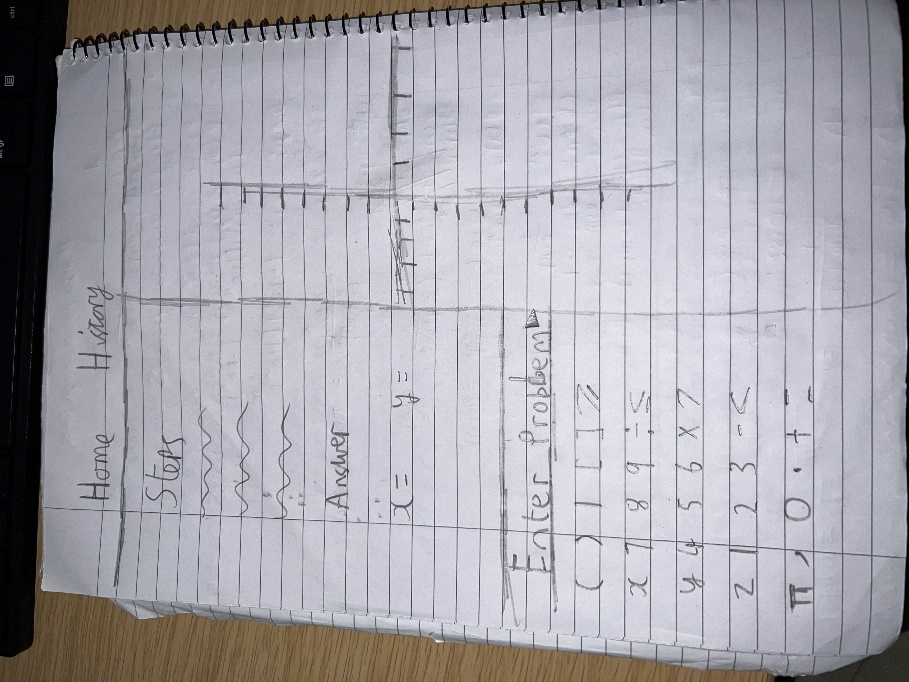 Home History
Steps
Answer
x = y =
Enter Probbem
( ) | [ ] ≥
x 7 8 9 ÷ ≤
y 4 5 6 × >
z 1 2 3 - <
π , 0 . + =